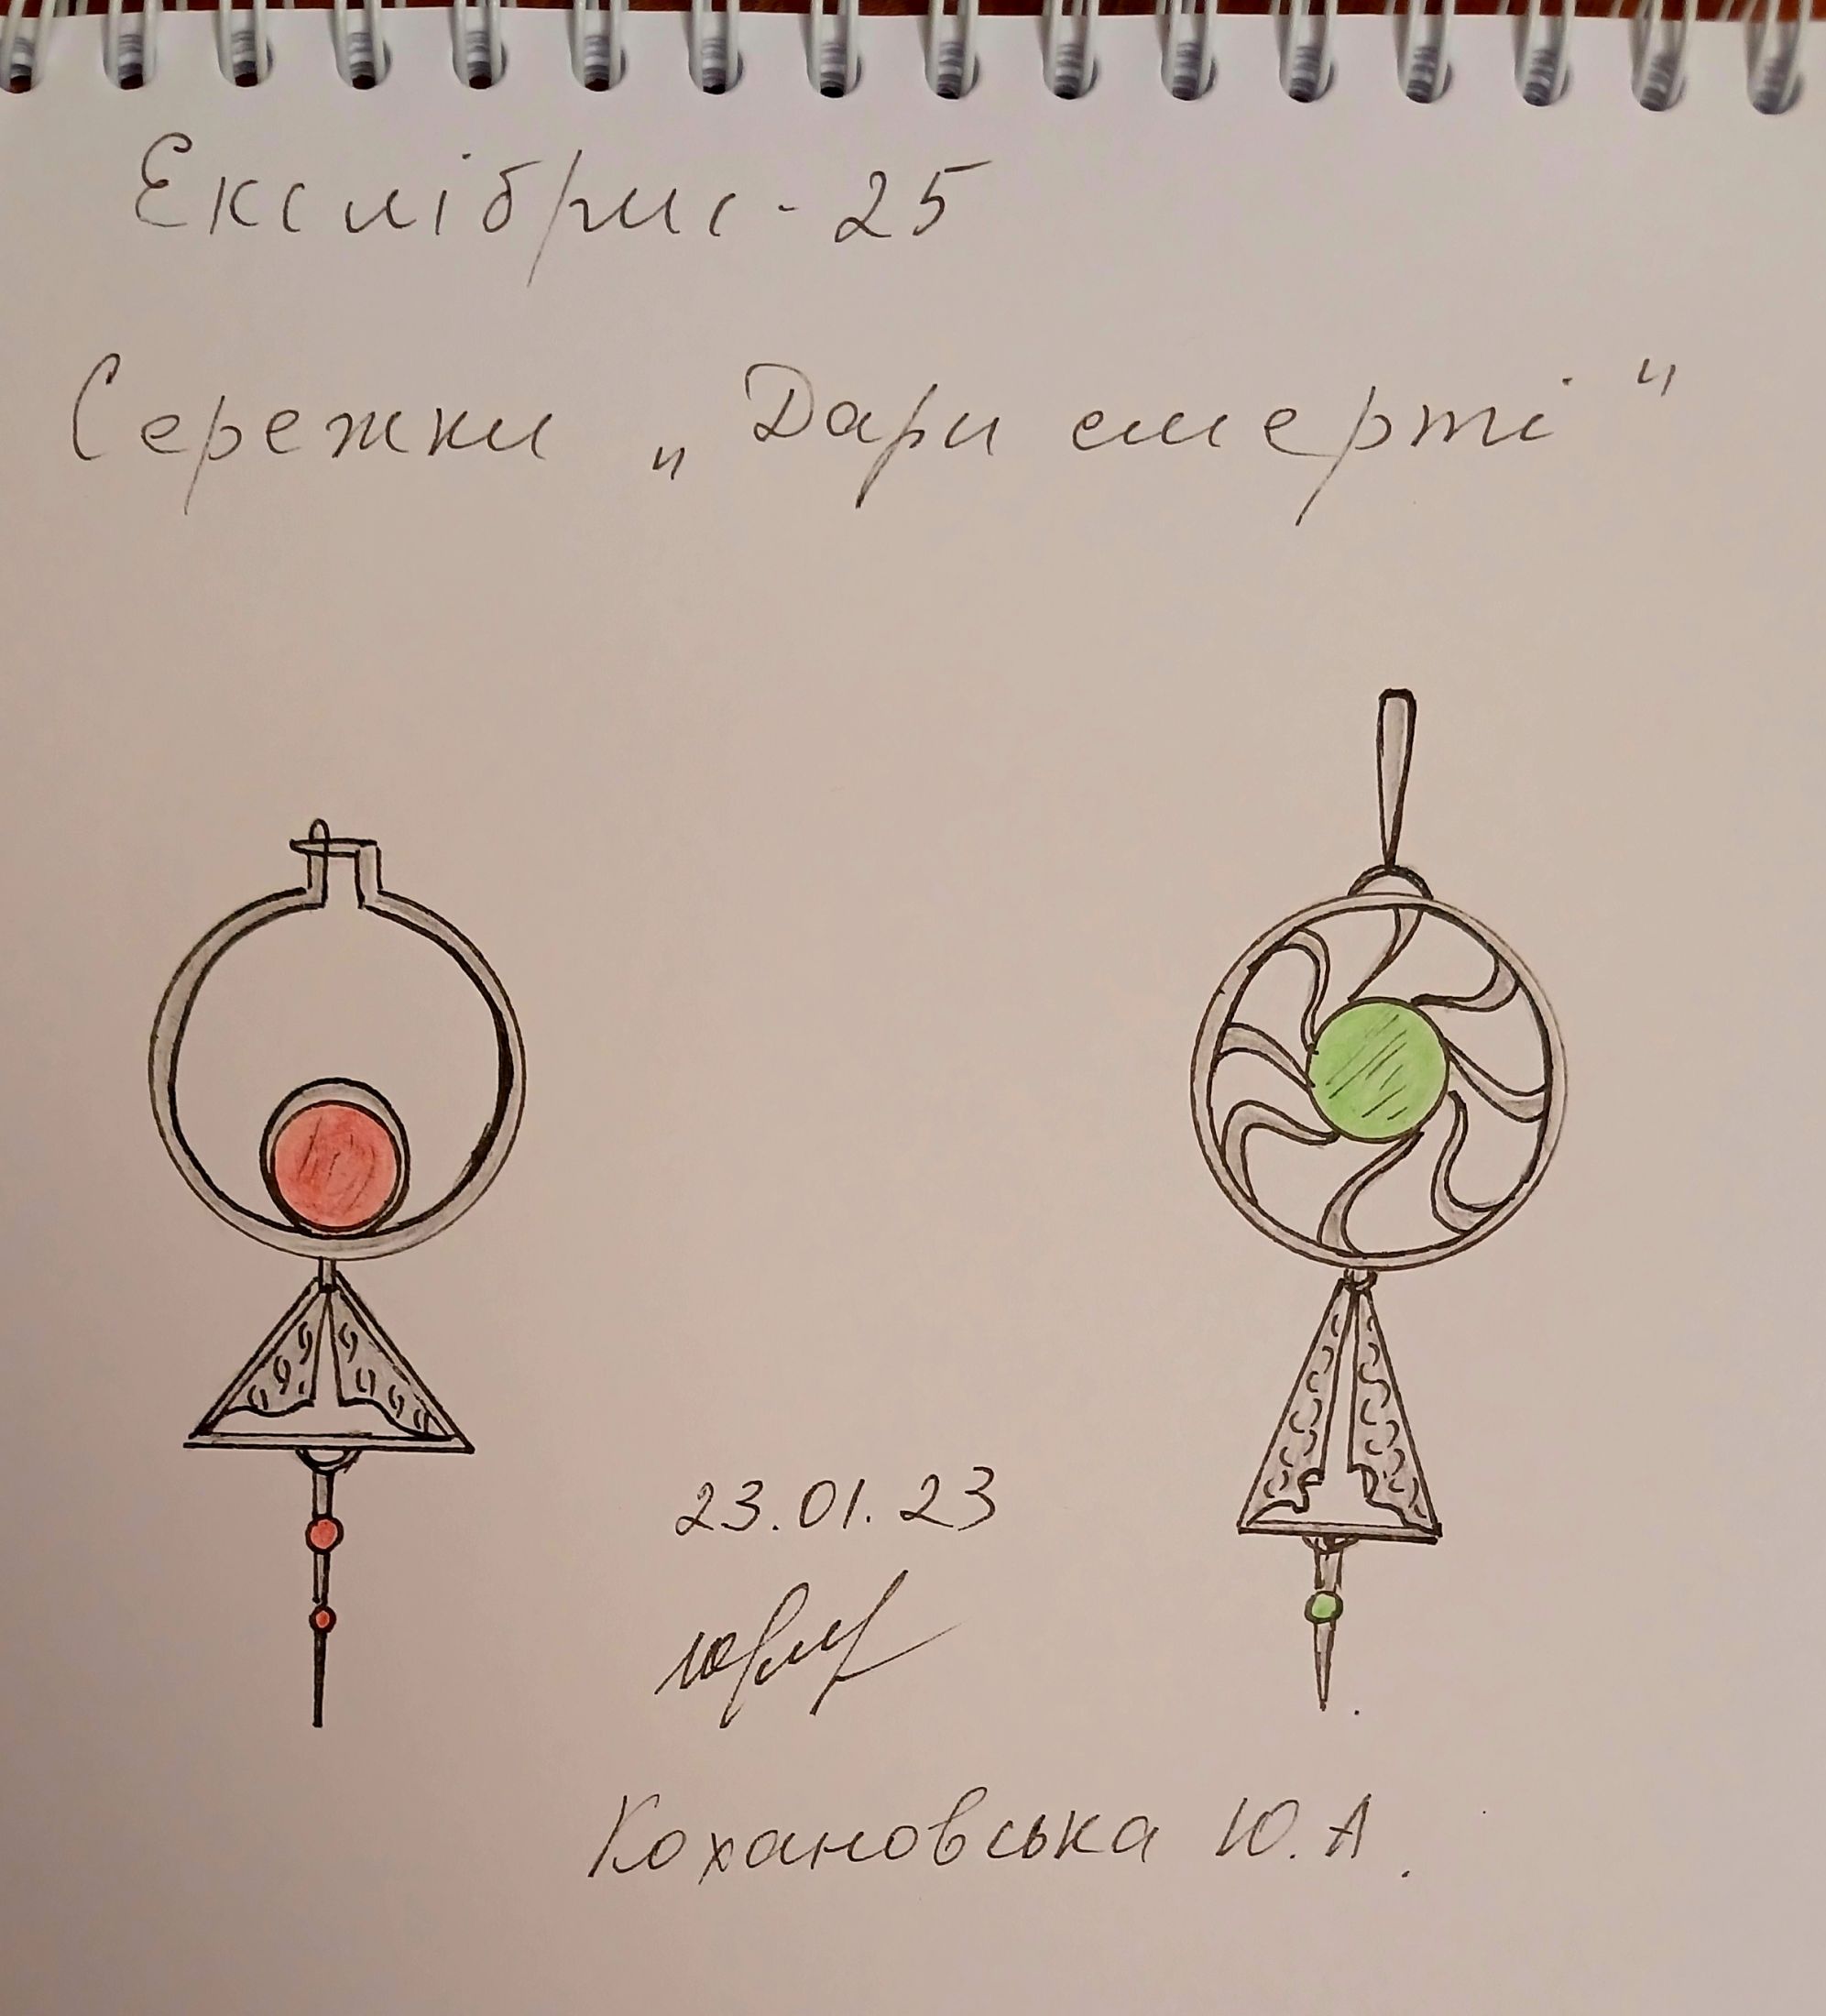 Екслібрис - 25
Сережки „Дари смерті"
23.01.23
Кохановська Ю.А.